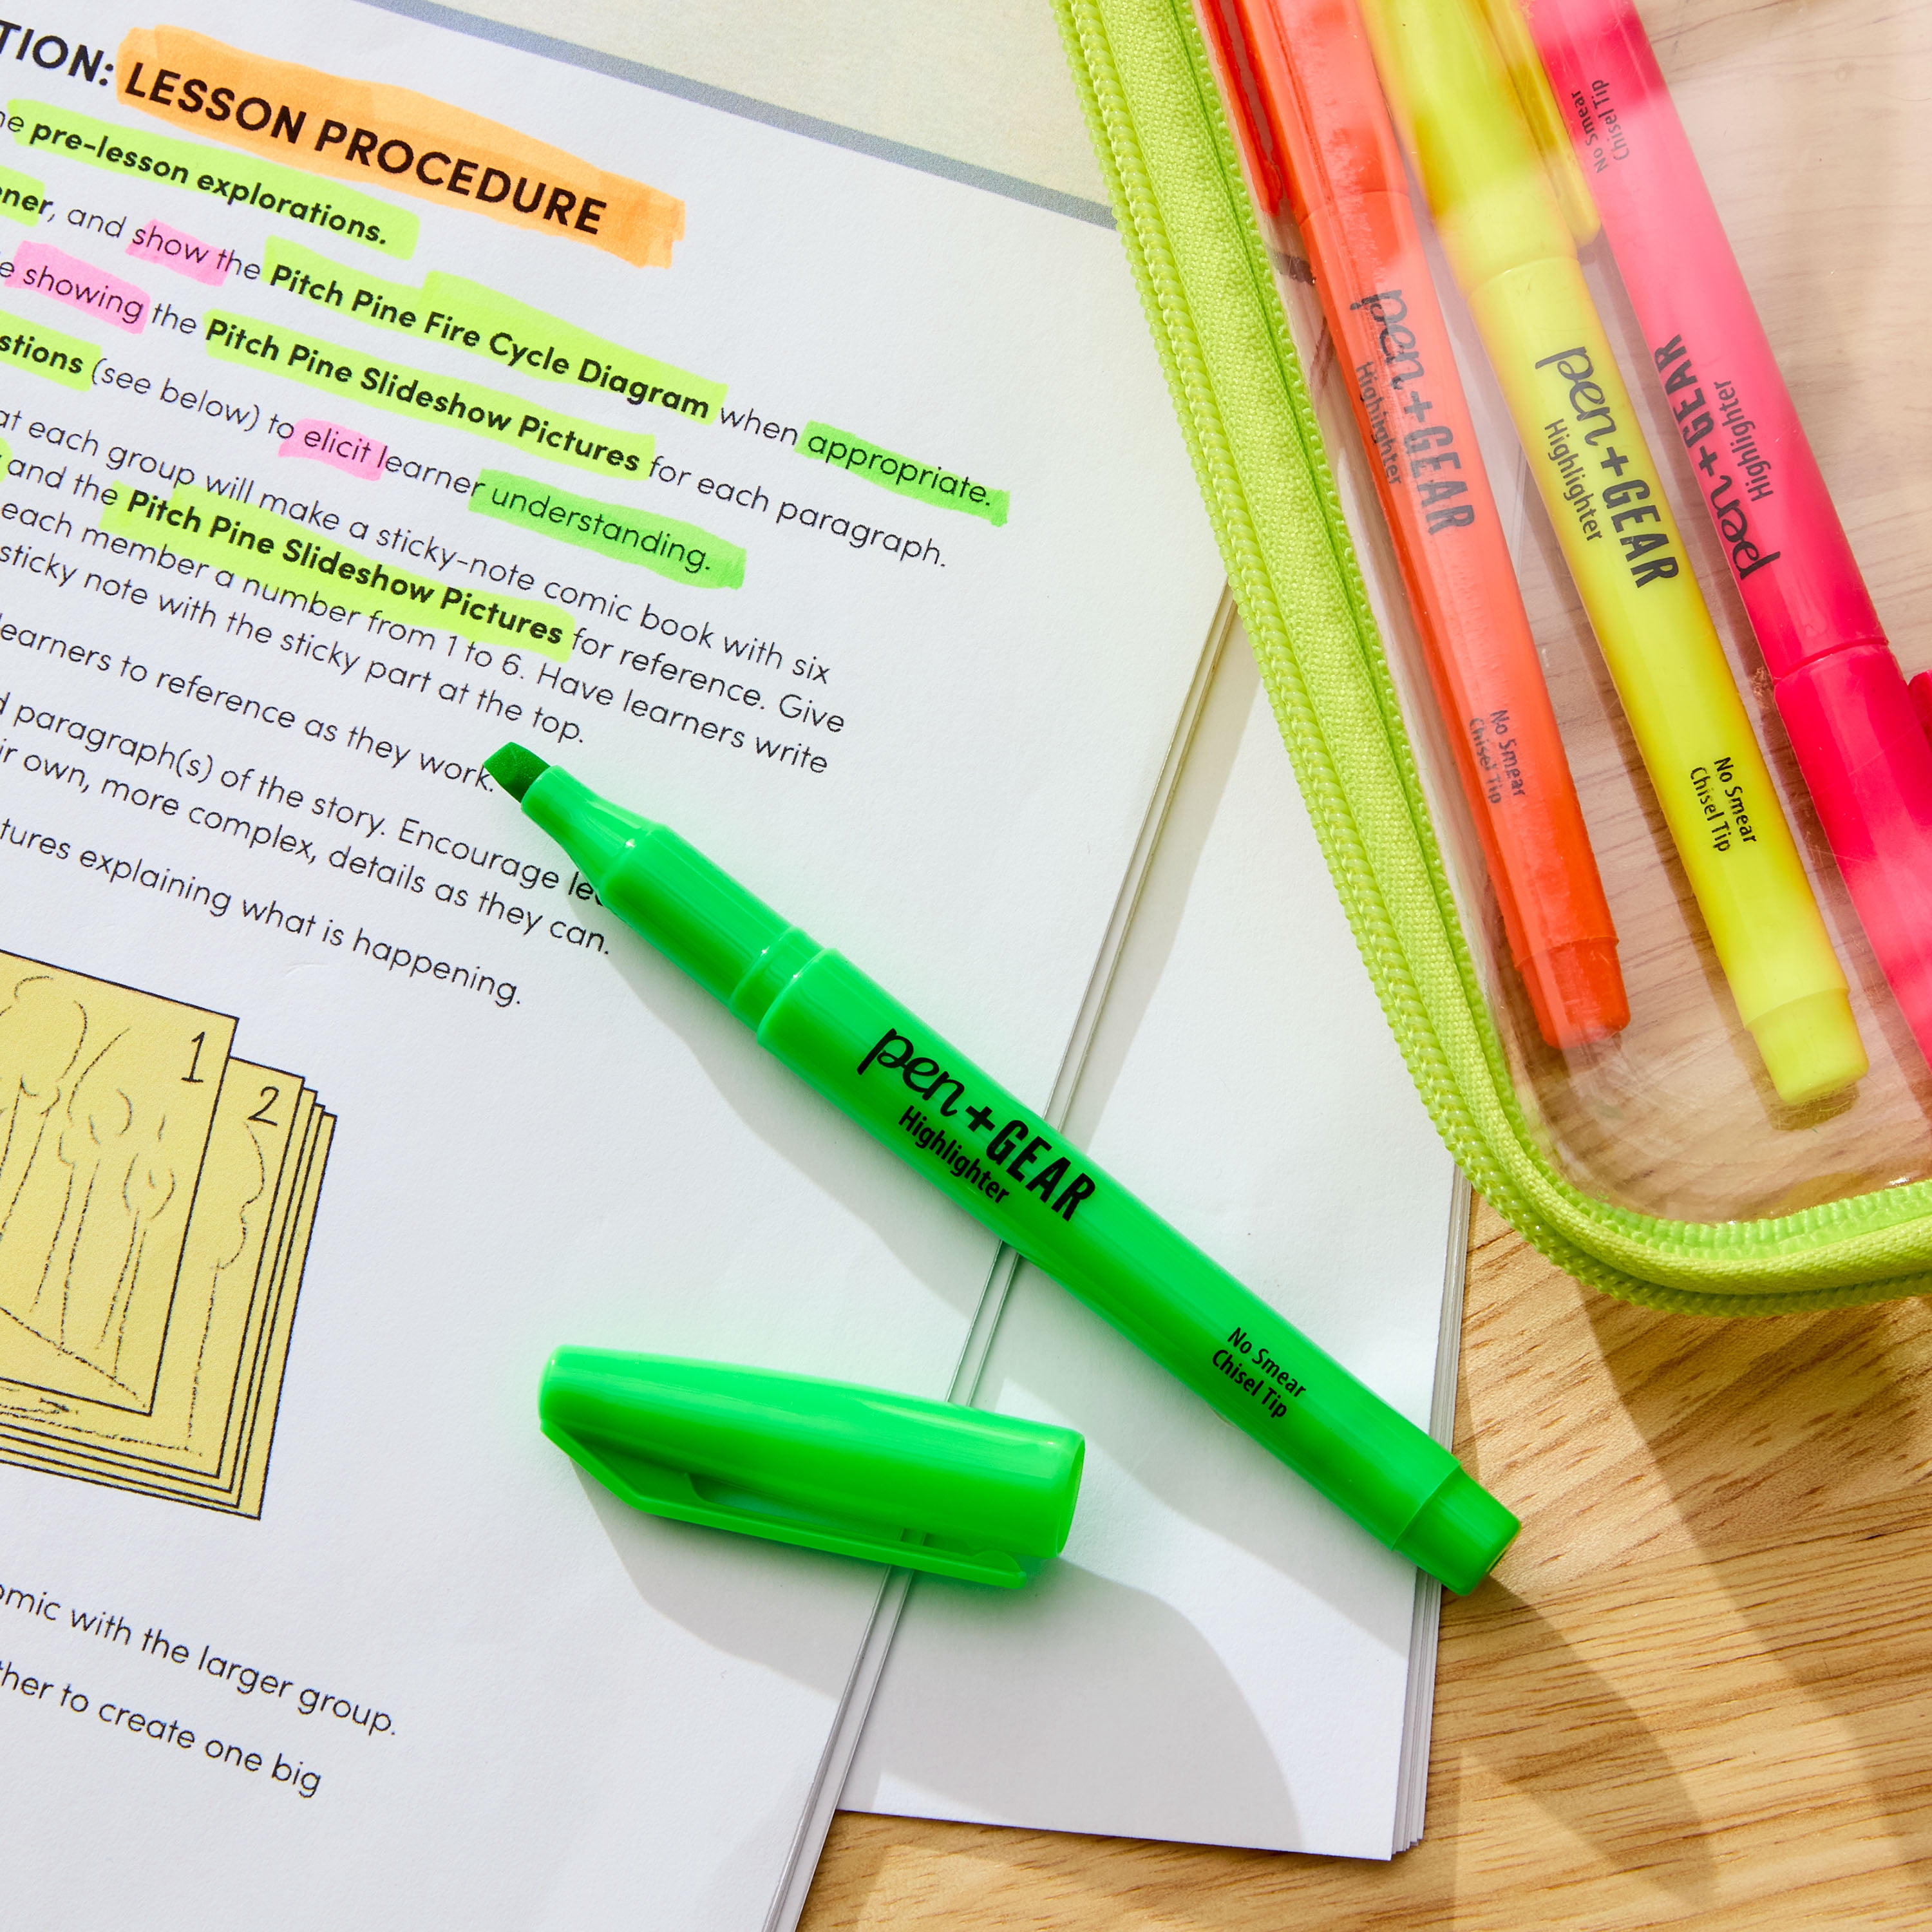 TION: LESSON PROCEDURE
pre-lesson explorations.
and show the Pitch Pine Fire Cycle Diagram when appropriate.
showing the Pitch Pine Slideshow Pictures for each paragraph.
stions (see below) to elicit learner understanding.
at each group will make a sticky-note comic book with six
and the Pitch Pine Slideshow Pictures for reference. Give
each member a number from 1 to 6. Have learners write
sticky note with the sticky part at the top.
learners to reference as they work.
paragraph(s) of the story. Encourage
own, more complex, details as they can.
tures explaining what is happening.
1
2
omic with the larger group.
ther to create one big
pen+GEAR
Highlighter
No Smear
Chisel Tip
pen+GEAR
Highlighter
No Smear
Chisel Tip
pen+GEAR
Highlighter
No Smear
Chisel Tip
pen+GEAR
Highlighter
No Smear
Chisel Tip